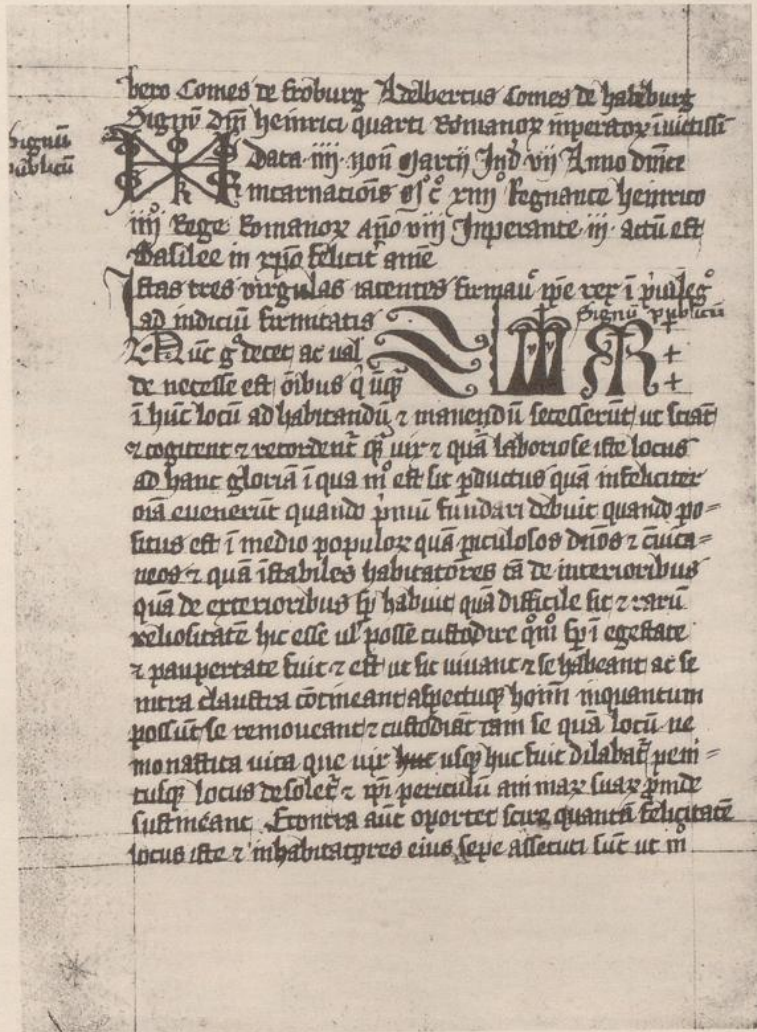 bero Comes de froburg Adelbertus Comes de habēburg
Signū dn̄i heinrici quarti Romanoꝝ inperatoꝝ īuictissi
Signū
publicū
Data iiii non̄ Marcii Ind̄ vii Anno dn̄ice
incarnacōis Mͦ Cͦ xiiiiͦ Regnante heinrico
iiiiͦ Rege Romanoꝝ an̄o viii Inperante iii actū est
Basilee in xp̄o felicit̄ amē
Istas tres virgulas iacentes firmauͭ ip̄e rex ī p̄uilegͦ
ad indiciū firmitatis
Signū publicū
Nūc gͦ decet ac ual
de necesse est ōibus
ī hūc locū ad habitandū ⁊ manendū secesserūt ut sciāt
⁊ cogitent ⁊ recordent᷑ qͣ uix ⁊ quā laboriose iste locus
ad hanc gloriā ī qua mͦ est sit ꝑductus quā infeliciter
oīa euenerūt quando p̄mū fundari debuit quando po=
situs est ī medio populoꝝ quā ꝑiculosos dn̄os ⁊ cūica=
neos ⁊ quā īstabiles habitatores tā de interioribus
quā de exterioribus sꝑ habuit quā difficile sit ⁊ rarū
reliositatē hic esse ul̄ posse custodire qͦm̄ sꝑ ī egestate
⁊ paupertate fuit ⁊ est ut sic uiuant ⁊ se habeant ac se
intra claustra cōtineant aspectuqꝫ hoīm inquantum
possūt se remoueant ⁊ custodiāt tam se quā locū ne
monastica uita que uix huc usqꝫ huc fuit dilabat᷑ peni=
tusqꝫ locus desolet᷑ ⁊ ip̄i periculū animaꝝ suaꝝ ꝓinde
sustineant Econtra aūt oportet scire quantā felicitatē
locus iste ⁊ inhabitatores eius sepe assecuti sūt ut mͦ